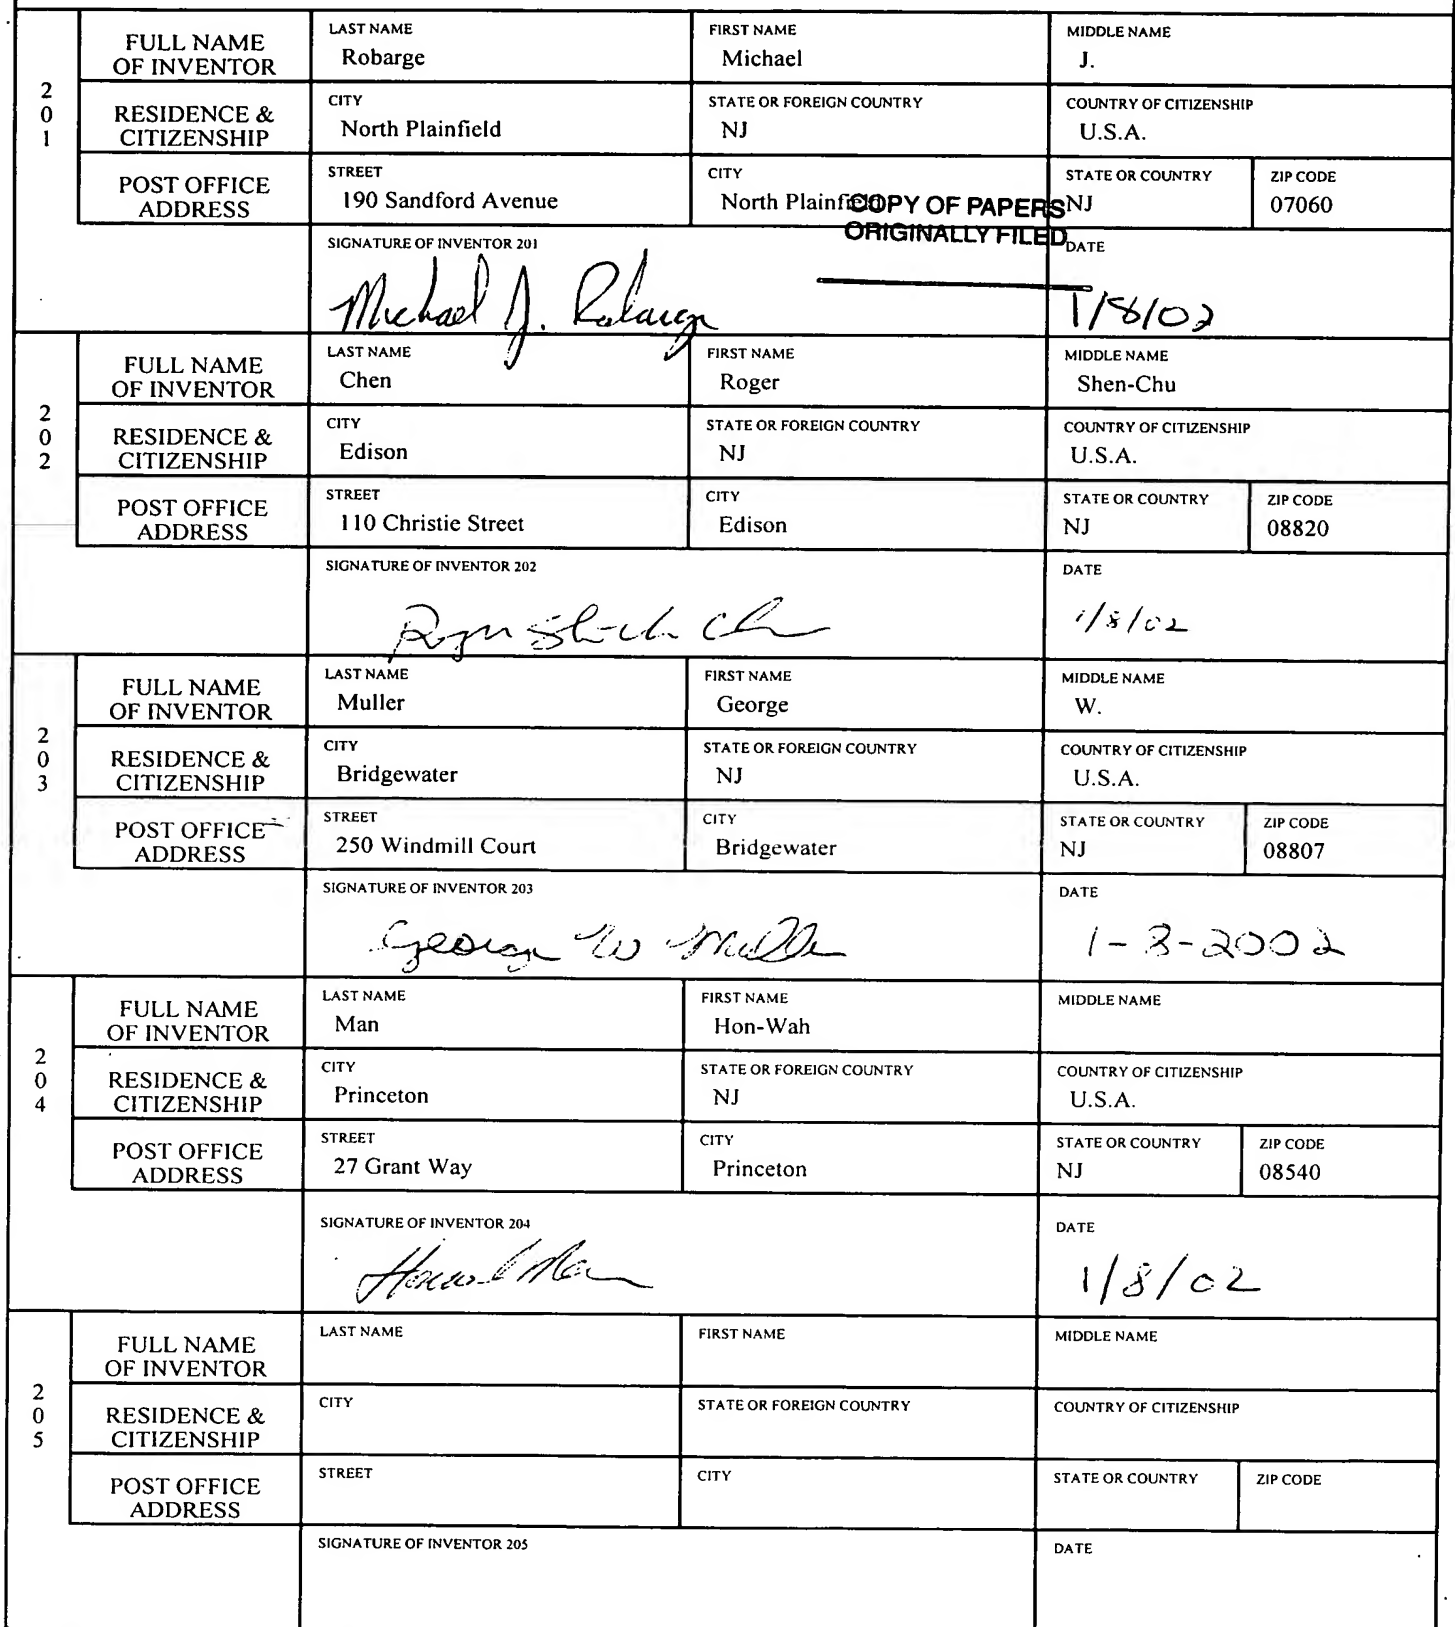 201
FULL NAME OF INVENTOR
LAST NAME Robarge
FIRST NAME Michael
MIDDLE NAME J.
RESIDENCE & CITIZENSHIP
CITY North Plainfield
STATE OR FOREIGN COUNTRY NJ
COUNTRY OF CITIZENSHIP U.S.A.
POST OFFICE ADDRESS
STREET 190 Sandford Avenue
CITY North Plainfield
STATE OR COUNTRY NJ
ZIP CODE 07060
COPY OF PAPERS
ORIGINALLY FILED
SIGNATURE OF INVENTOR 201
Michael J. Robarge
DATE
1/8/02
202
FULL NAME OF INVENTOR
LAST NAME Chen
FIRST NAME Roger
MIDDLE NAME Shen-Chu
RESIDENCE & CITIZENSHIP
CITY Edison
STATE OR FOREIGN COUNTRY NJ
COUNTRY OF CITIZENSHIP U.S.A.
POST OFFICE ADDRESS
STREET 110 Christie Street
CITY Edison
STATE OR COUNTRY NJ
ZIP CODE 08820
SIGNATURE OF INVENTOR 202
Roger Shen-Chu Chen
DATE
1/8/02
203
FULL NAME OF INVENTOR
LAST NAME Muller
FIRST NAME George
MIDDLE NAME W.
RESIDENCE & CITIZENSHIP
CITY Bridgewater
STATE OR FOREIGN COUNTRY NJ
COUNTRY OF CITIZENSHIP U.S.A.
POST OFFICE ADDRESS
STREET 250 Windmill Court
CITY Bridgewater
STATE OR COUNTRY NJ
ZIP CODE 08807
SIGNATURE OF INVENTOR 203
George W Muller
DATE
1-8-2002
204
FULL NAME OF INVENTOR
LAST NAME Man
FIRST NAME Hon-Wah
MIDDLE NAME
RESIDENCE & CITIZENSHIP
CITY Princeton
STATE OR FOREIGN COUNTRY NJ
COUNTRY OF CITIZENSHIP U.S.A.
POST OFFICE ADDRESS
STREET 27 Grant Way
CITY Princeton
STATE OR COUNTRY NJ
ZIP CODE 08540
SIGNATURE OF INVENTOR 204
DATE
1/8/02
205
FULL NAME OF INVENTOR
LAST NAME
FIRST NAME
MIDDLE NAME
RESIDENCE & CITIZENSHIP
CITY
STATE OR FOREIGN COUNTRY
COUNTRY OF CITIZENSHIP
POST OFFICE ADDRESS
STREET
CITY
STATE OR COUNTRY
ZIP CODE
SIGNATURE OF INVENTOR 205
DATE